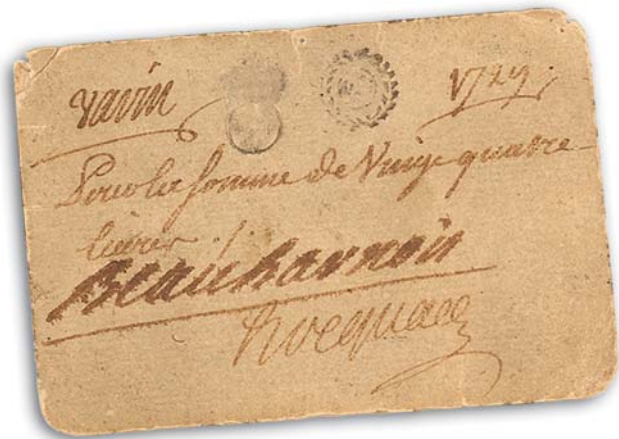 Varin 1729.
Pour la somme de Vingt quatre
livres ./.
Beauharnois
Hocquart